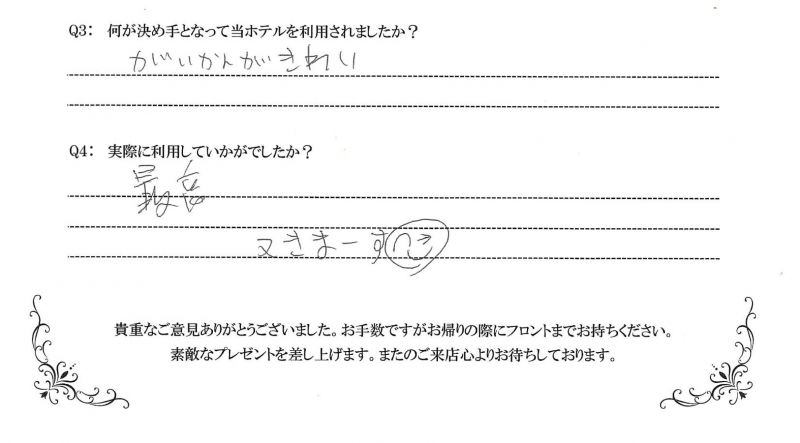 Q3： 何が決め手となって当ホテルを利用されましたか？
がいかんがきれい
Q4： 実際に利用していかがでしたか？
最高
又きまーす
貴重なご意見ありがとうございました。お手数ですがお帰りの際にフロントまでお持ちください。
素敵なプレゼントを差し上げます。またのご来店心よりお待ちしております。